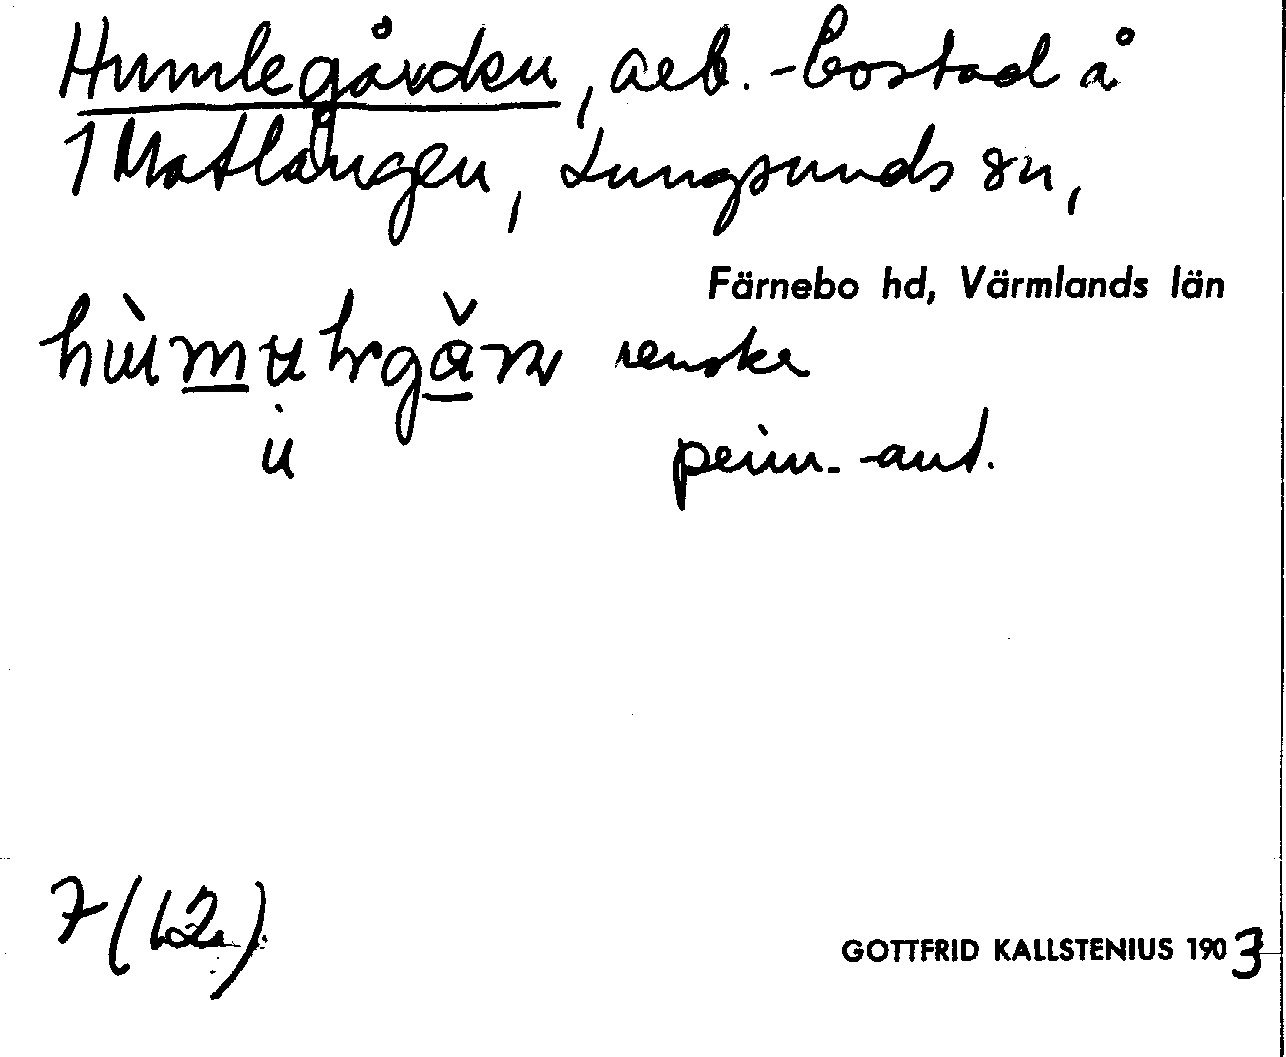 Humlegården, arb.-bostad å
1 Matlången, Lungsunds sn,
Färnebo hd, Värmlands län
ü
prim.-ant.
7 (12)
GOTTFRID KALLSTENIUS 1903